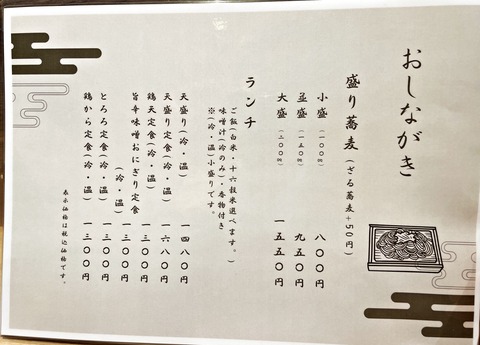 おしながき
盛り蕎麦(ざる蕎麦+50円)
小盛(一〇〇g) 八〇〇円
並盛(一五〇g) 九五〇円
大盛 一五五〇円
ランチ
ご飯(白米・十六穀米選べます。)
味噌汁(冷のみ)・香物付き
※(冷・温)小盛りです。
天盛り(冷・温) 一四八〇円
天盛り定食(冷・温) 一六八〇円
鶏天定食(冷・温) 一三〇〇円
旨辛味噌おにぎり定食
(冷・温) 一三〇〇円
とろろ定食(冷・温) 一三〇〇円
鶏から定食(冷・温) 一三〇〇円
表示価格は税込価格です。